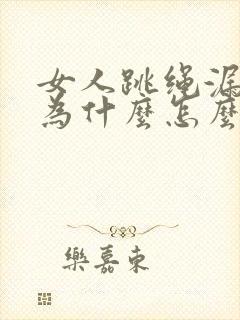 女人跳绳漏
為什麼怎麼
樂嘉東